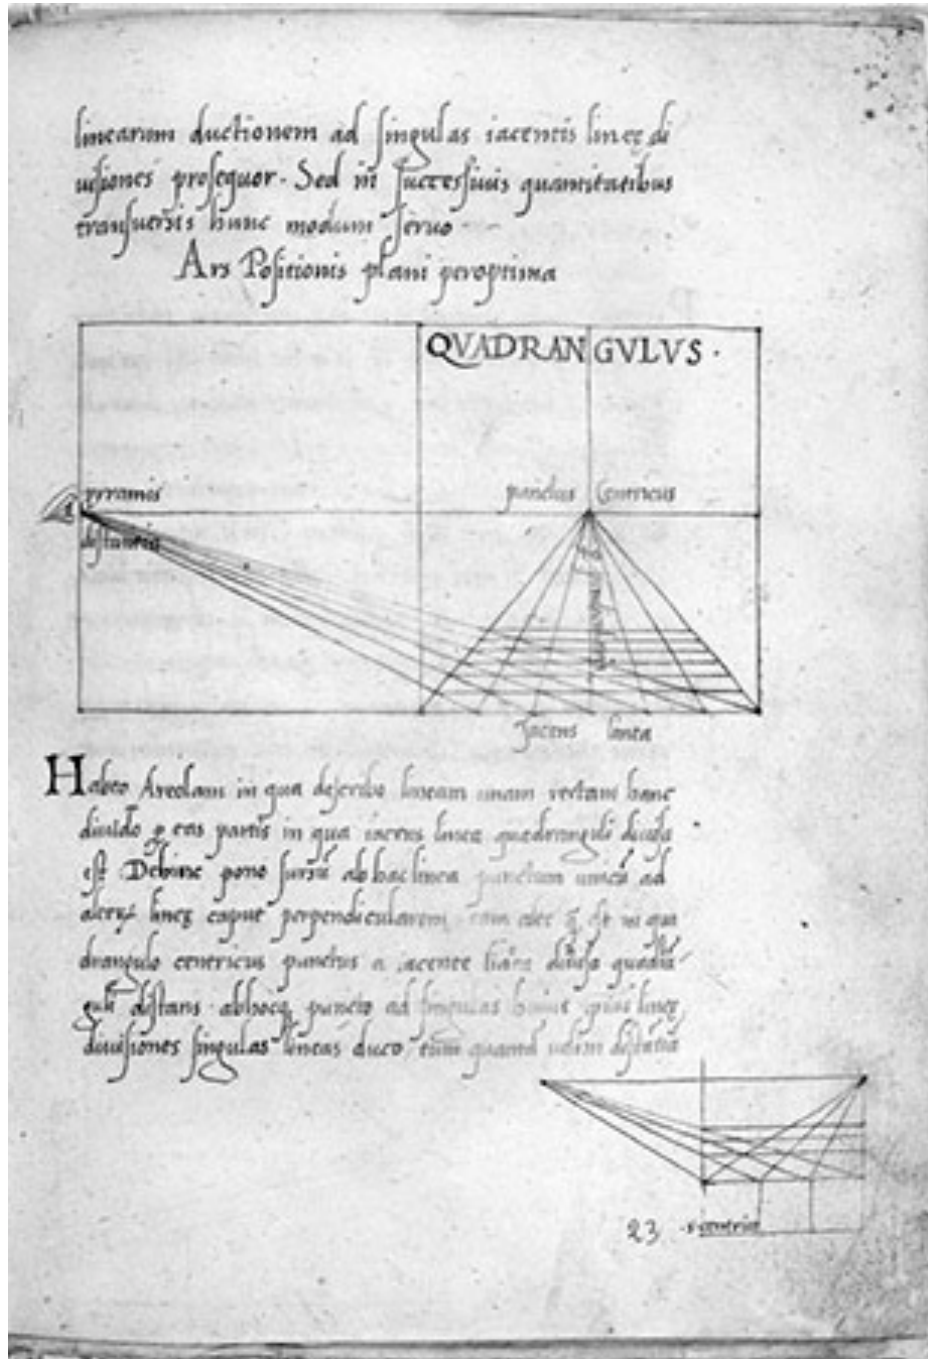 linearum ductionem ad singulas iacentis lineę di
uisiones prosequor. Sed in successiuis quantitatibus
transuersis hunc modum seruo
Ars Positionis plani peroptima
QVADRANGVLVS.
pyramis
punctus Centricus
distantia
Jacens linea
Habeo Areolam in qua describo lineam unam rectam hanc
diuido eas partis in qua iacens linea quadranguli diuisa
est Dehinc pono sursū ab hac linea punctum unicū ad
lineę caput perpendicularem in qua
drangulo centricus punctus a iacente diuisa
distans ab hocq puncto ad singulas huius ipsius lineę
diuisiones singulas lineas duco tum
23